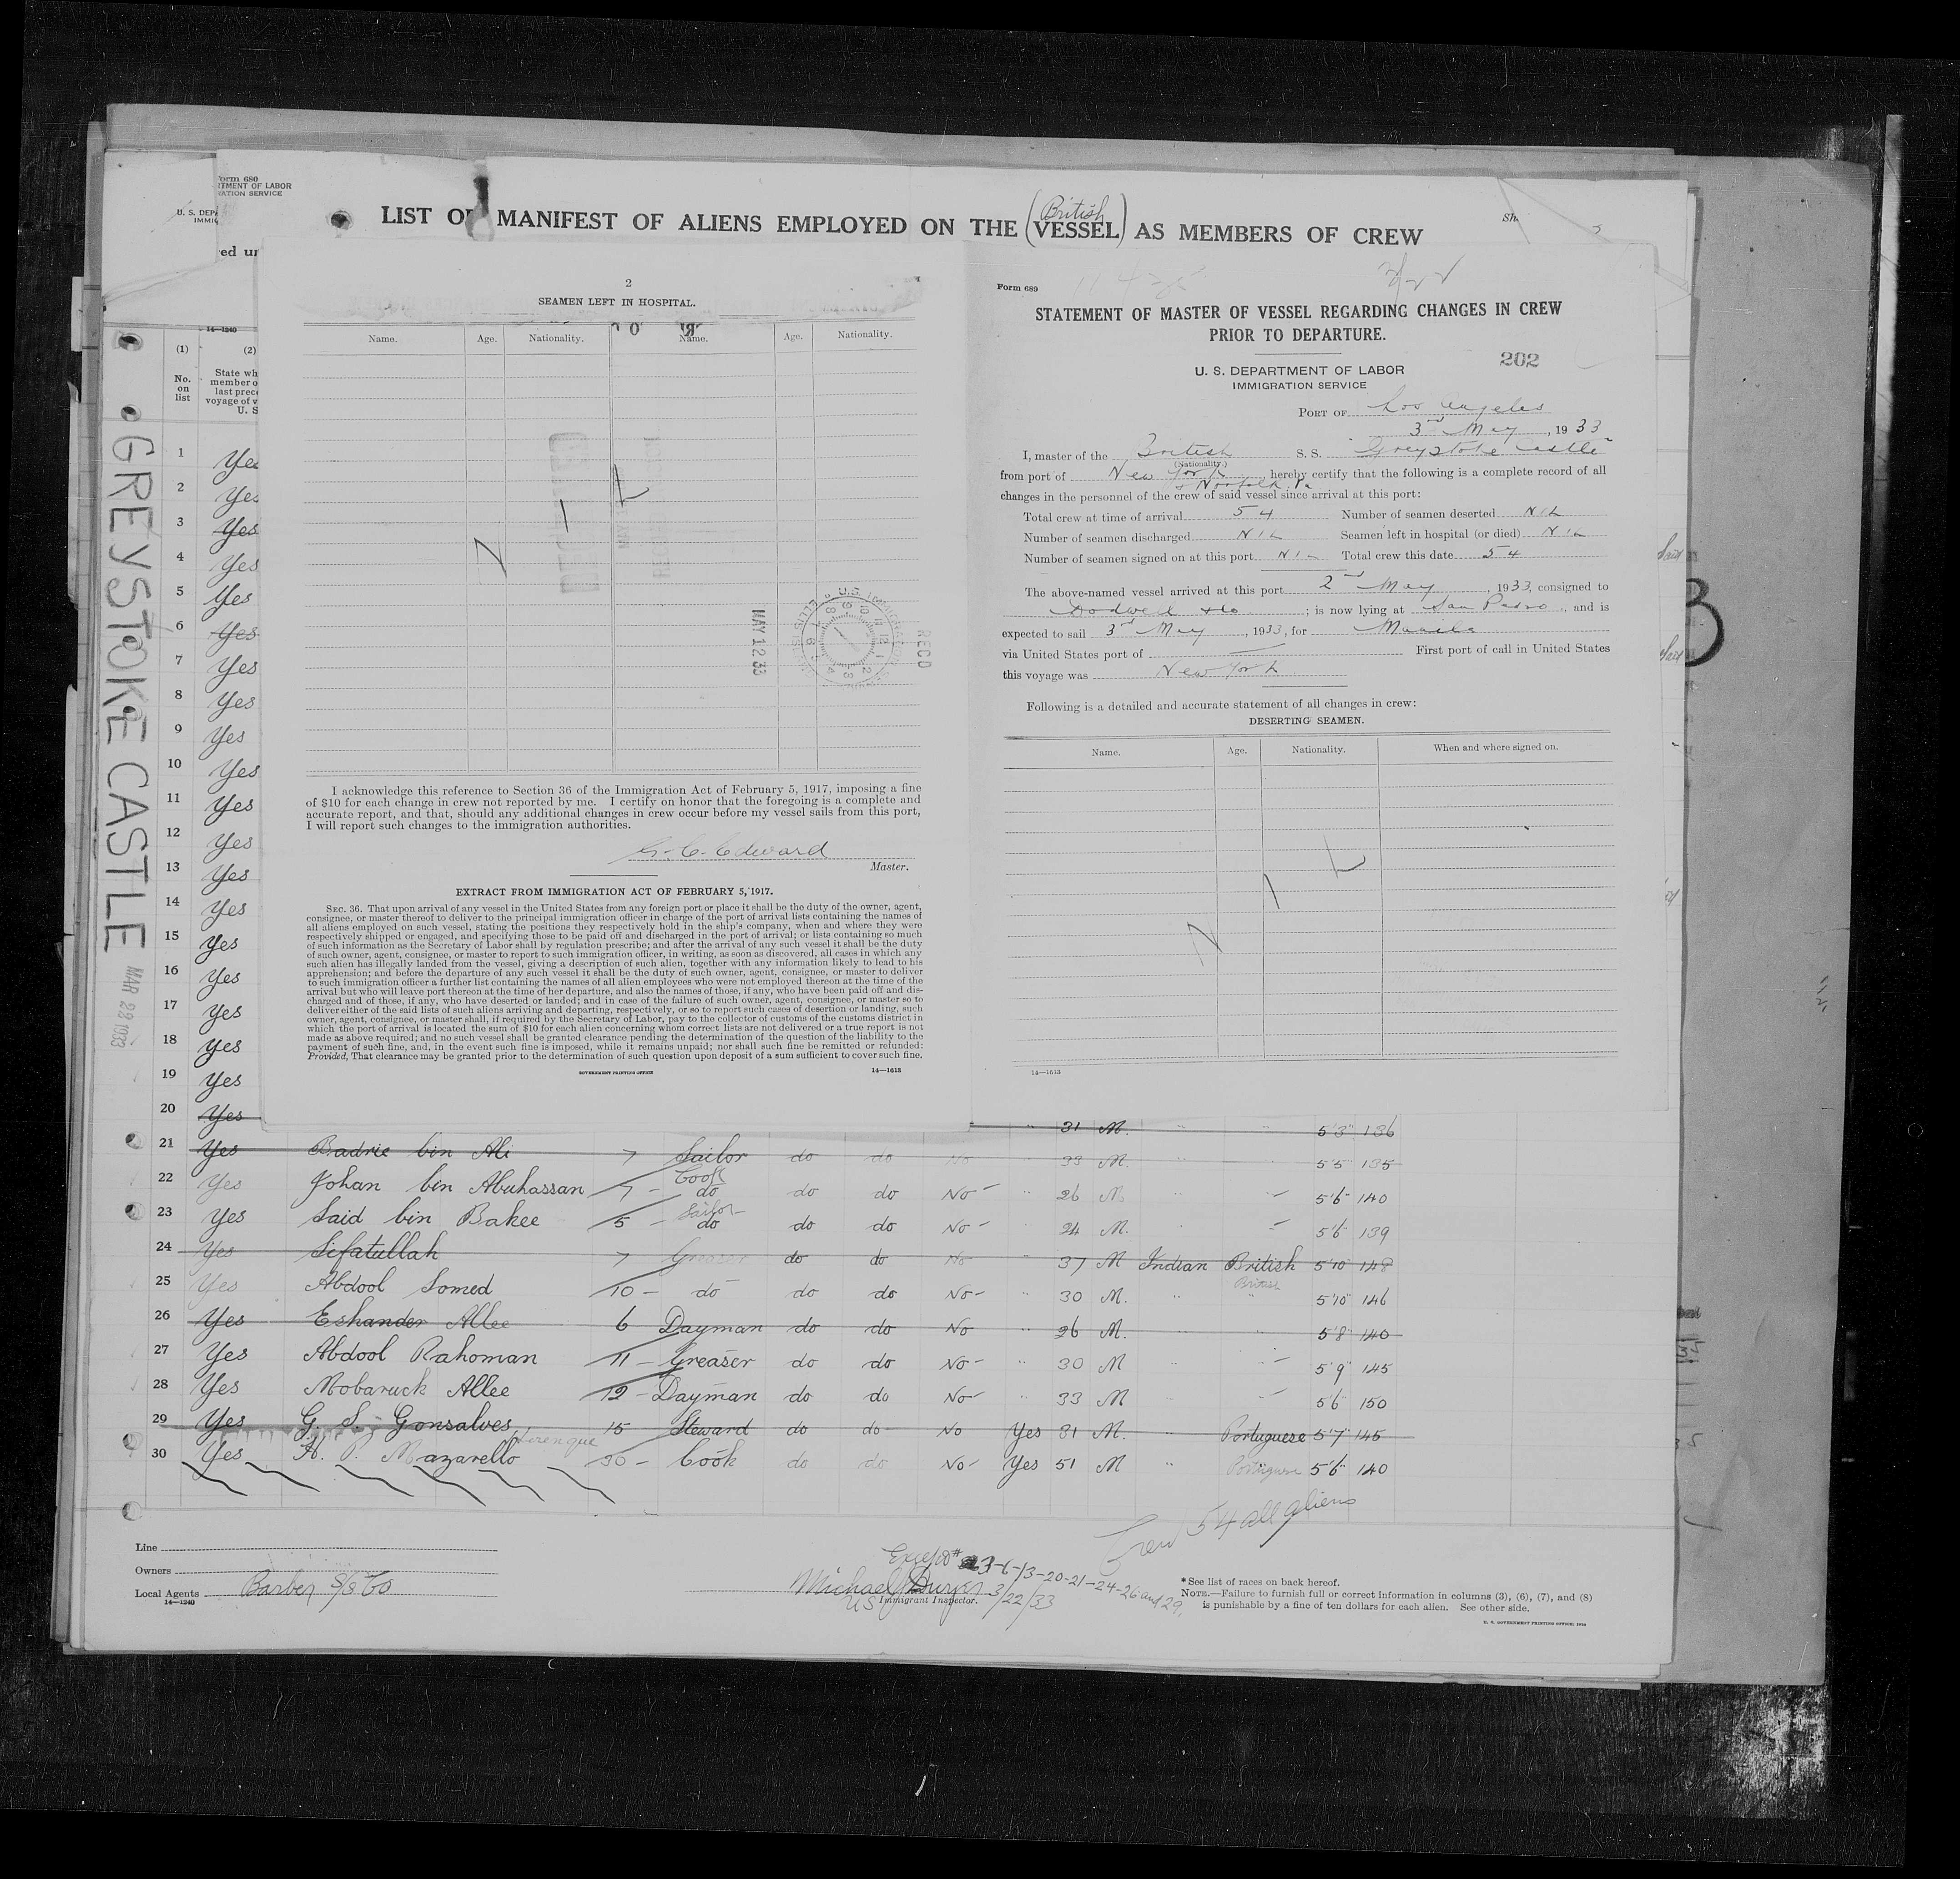 Form 680
RTMENT OF LABOR
RATION SERVICE
U. S. DEPA
IMMIG
LIST OR MANIFEST OF ALIENS EMPLOYED ON THE (VESSEL) AS MEMBERS OF CREW
British
ed un
14—1240
(1)
(2)
No. on list
State wh
member o
last prece
voyage of v
U. S
GREYSTOKE CASTLE
MAR 22 1933
1 Yes
2 Yes
3 Yes
4 Yes
5 Yes
6 Yes
7 Yes
8 Yes
9 Yes
10 Yes
11 Yes
12 Yes
13 Yes
14 Yes
15 Yes
16 Yes
17 Yes
18 Yes
19 Yes
20 Yes 31 M. " " 5'3" 136
21 Yes Badrie bin Ali 7 Sailor do do No " 33 M. " " 5'5" 135
Cook
22 Yes Johan bin Abuhassan 7 – do do do No – " 26 M " – 5'6" 140
Sailor
23 Yes Said bin Bakee 5 – do do do No – " 24 M. " – 5'6" 139
24 Yes Sifatullah 7 Greaser do do No " 37 M Indian British 5'10" 148
British
25 Yes Abdool Somed 10 – do do do No – " 30 M. " " 5'10" 146
26 Yes Eshander Allee 6 Dayman do do No " 26 M. " " 5'8" 140
27 Yes Abdool Rahoman 11 – Greaser do do No – " 30 M " – 5'9" 145
28 Yes Mobaruck Allee 12 – Dayman do do No – " 33 M " – 5'6" 150
29 Yes G. S. Gonsalves 15 Steward do do No Yes 31 M. " Portuguese 5'7" 145
30 Yes A. P. Mazarello 30 – Cook do do No – Yes 51 M " Portuguese 5'6" 140
Crew 54 all aliens
Line
Owners
Local Agents Barber S/S Co
14—1240
Except # 3-6-13-20-21-24-26 and 29.
Michael Dwyer 3/22/33
US Immigrant Inspector.
* See list of races on back hereof.
NOTE.—Failure to furnish full or correct information in columns (3), (6), (7), and (8)
is punishable by a fine of ten dollars for each alien. See other side.
2
SEAMEN LEFT IN HOSPITAL.
Name. Age. Nationality. Name. Age. Nationality.
N I L
MAY 12 33
RECD
I acknowledge this reference to Section 36 of the Immigration Act of February 5, 1917, imposing a fine
of $10 for each change in crew not reported by me. I certify on honor that the foregoing is a complete and
accurate report, and that, should any additional changes in crew occur before my vessel sails from this port,
I will report such changes to the immigration authorities.
G. C. Edward
Master.
EXTRACT FROM IMMIGRATION ACT OF FEBRUARY 5, 1917.
SEC. 36. That upon arrival of any vessel in the United States from any foreign port or place it shall be the duty of the owner, agent,
consignee, or master thereof to deliver to the principal immigration officer in charge of the port of arrival lists containing the names of
all aliens employed on such vessel, stating the positions they respectively hold in the ship's company, when and where they were
respectively shipped or engaged, and specifying those to be paid off and discharged in the port of arrival; or lists containing so much
of such information as the Secretary of Labor shall by regulation prescribe; and after the arrival of any such vessel it shall be the duty
of such owner, agent, consignee, or master to report to such immigration officer, in writing, as soon as discovered, all cases in which any
such alien has illegally landed from the vessel, giving a description of such alien, together with any information likely to lead to his
apprehension; and before the departure of any such vessel it shall be the duty of such owner, agent, consignee, or master to deliver
to such immigration officer a further list containing the names of all alien employees who were not employed thereon at the time of the
arrival but who will leave port thereon at the time of her departure, and also the names of those, if any, who have been paid off and dis-
charged and of those, if any, who have deserted or landed; and in case of the failure of such owner, agent, consignee, or master so to
deliver either of the said lists of such aliens arriving and departing, respectively, or so to report such cases of desertion or landing, such
owner, agent, consignee, or master shall, if required by the Secretary of Labor, pay to the collector of customs of the customs district in
which the port of arrival is located the sum of $10 for each alien concerning whom correct lists are not delivered or a true report is not
made as above required; and no such vessel shall be granted clearance pending the determination of the question of the liability to the
payment of such fine, and, in the event such fine is imposed, while it remains unpaid; nor shall such fine be remitted or refunded:
Provided, That clearance may be granted prior to the determination of such question upon deposit of a sum sufficient to cover such fine.
GOVERNMENT PRINTING OFFICE
14—1613
Form 689
STATEMENT OF MASTER OF VESSEL REGARDING CHANGES IN CREW
PRIOR TO DEPARTURE.
202
U. S. DEPARTMENT OF LABOR
IMMIGRATION SERVICE
PORT OF Los Angeles
3rd May, 1933
I, master of the British S. S. "Greystoke Castle"
(Nationality.)
from port of New York & Norfolk Va hereby certify that the following is a complete record of all
changes in the personnel of the crew of said vessel since arrival at this port:
Total crew at time of arrival 54 Number of seamen deserted NIL
Number of seamen discharged NIL Seamen left in hospital (or died) NIL
Number of seamen signed on at this port NIL Total crew this date 54
The above-named vessel arrived at this port 2nd May, 1933, consigned to
Dodwell & Co; is now lying at San Pedro, and is
expected to sail 3rd May, 1933, for Manila
via United States port of — First port of call in United States
this voyage was New York
Following is a detailed and accurate statement of all changes in crew:
DESERTING SEAMEN.
Name. Age. Nationality. When and where signed on.
N I L
14—1613